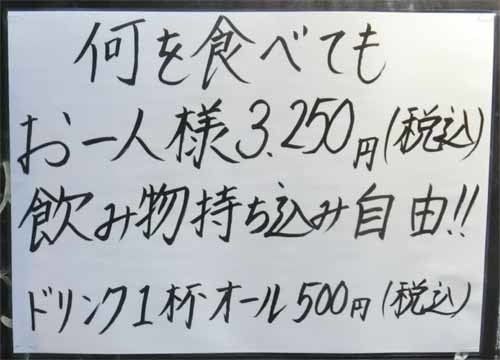 何を食べても
お一人様3.250円(税込)
飲み物持ち込み自由!!
ドリンク1杯オール500円(税込)